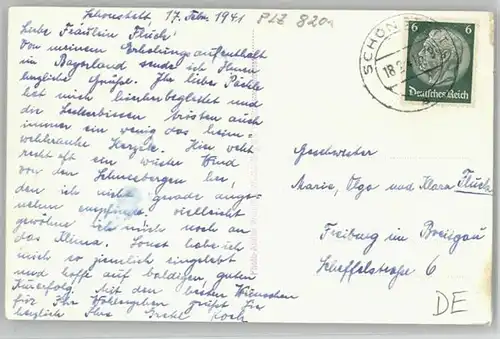 Schonstett 17. Febr. 1941 PLZ 8201
Liebe Fräulein Fluck!
Von meinem Erholungsaufenthalt
im Bayerland sende ich Ihnen
herzliche Grüße. Ihr liebes Päckle
hat mich hierherbegleitet und
die Leckerbissen trösten auch
immer ein wenig das heim-
wehkranke Herzele. Hier weht
recht oft ein wüster Wind
von den Schneebergen her,
den ich nicht gerade ange-
nehm empfinde. Vielleicht
gewöhne ich mich noch an
das Klima. Sonst habe ich
mich so ziemlich eingelebt
und hoffe auf baldigen guten
Kurerfolg. Mit den besten Wünschen
für Ihr Wohlergehen grüßt Sie
herzlich Ihre Gretel Koch
SCHÖN
18.2.
6 6
Deutsches Reich
Geschwister
Marie, Olga und Klara Fluck
Freiburg im Breisgau
Scheffelstraße 6
DE